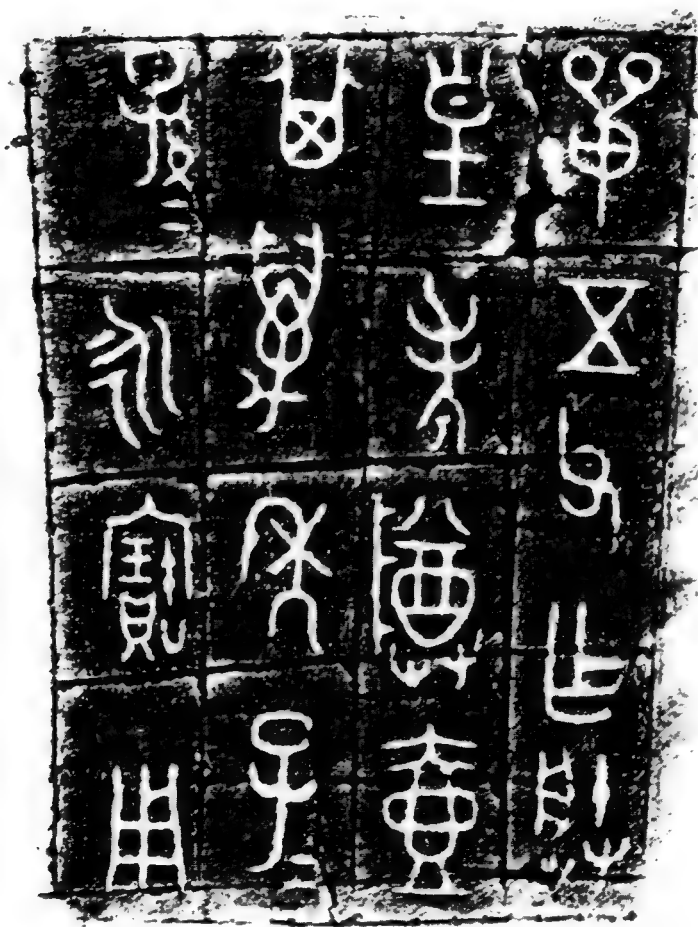 單五父乍朕
皇考尊壺
其萬年子=
孫=永寶用